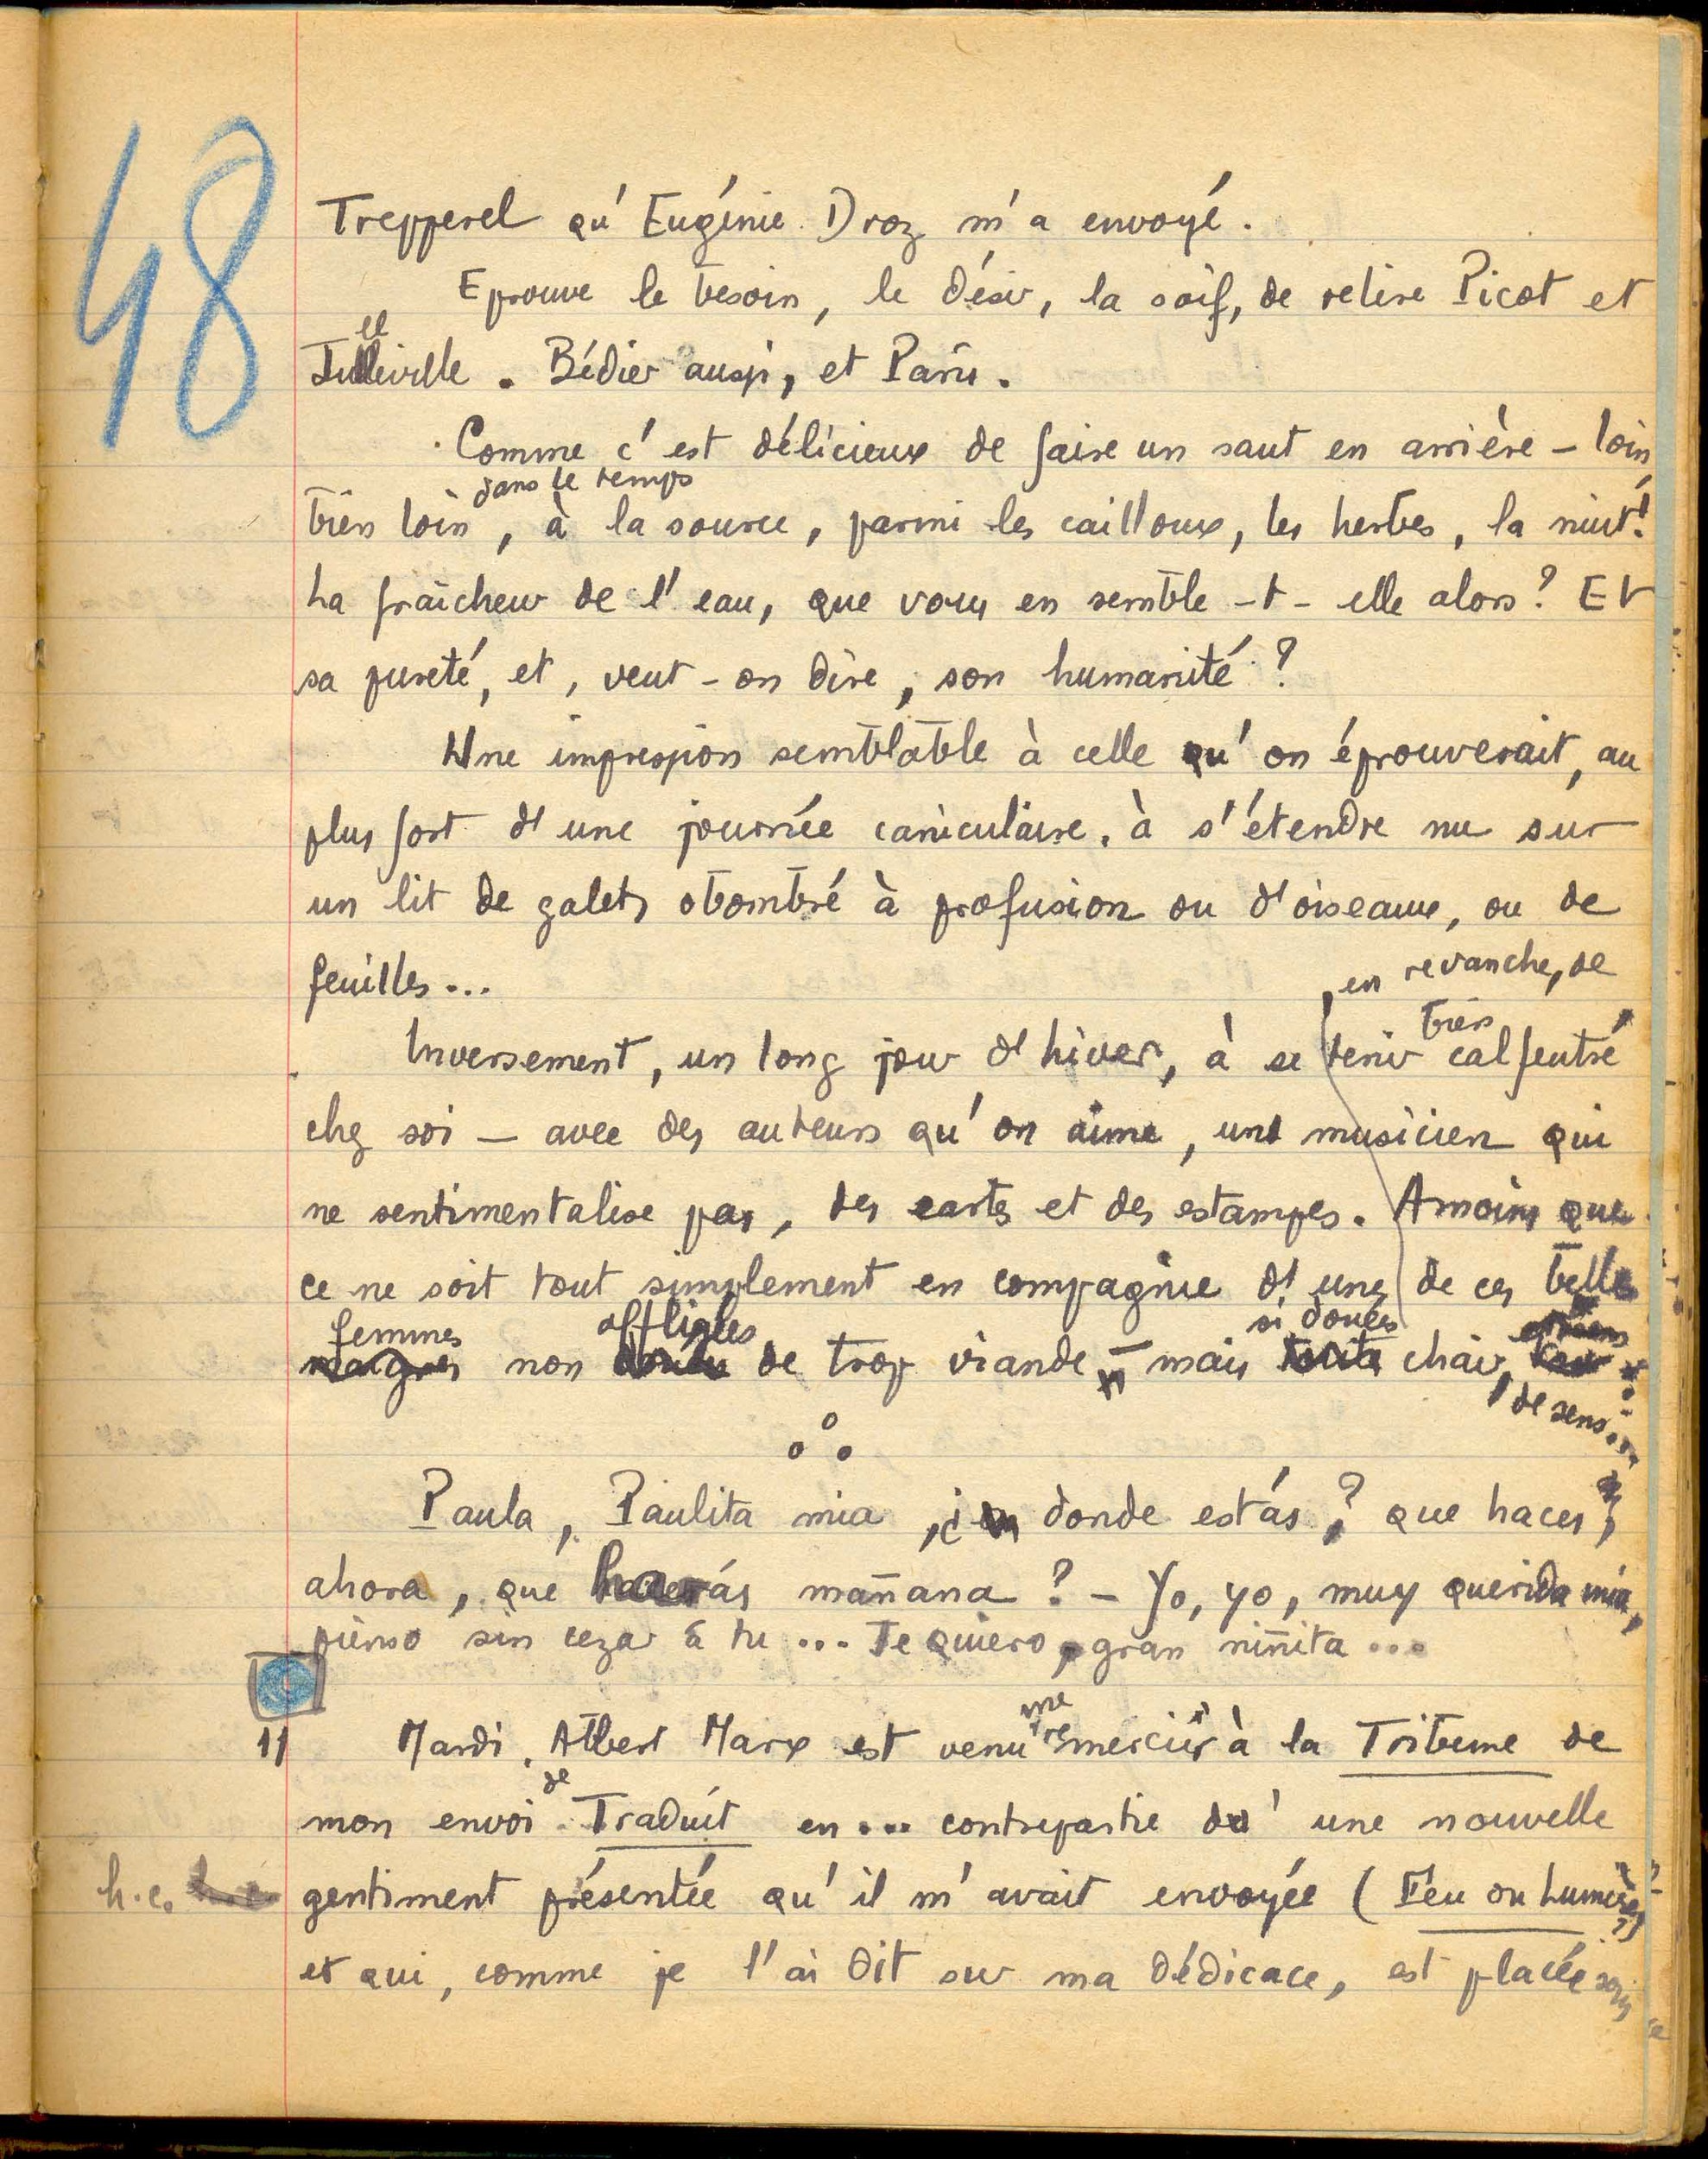 48
Trepperel qu'Eugénie Droz m'a envoyé.
Eprouve le besoin, le désir, la soif, de relire Picot et
Julleville. Bédier aussi, et Paris.
Comme c'est délicieux de faire un saut en arrière - loin,
dans le temps
très loin, à la source, parmi les cailloux, les herbes, la nuit!
La fraîcheur de l'eau, que vous en semble-t-elle alors? Et
sa pureté, et, veut-on dire, son humanité?
Une impression semblable à celle qu'on éprouverait, au
plus fort d'une journée caniculaire, à s'étendre nu sur
un lit de galets obombré à profusion ou d'oiseaux, ou de
feuilles...
, en revanche, de
très
Inversement, un long jour d'hiver, à se tenir calfeutré
chez soi - avec des auteurs qu'on aime, un musicien qui
ne sentimentalise pas, des cartes et des estampes. A moins que
ce ne soit tout simplement en compagnie d'une de ces belles
femmes affligées si douées
maigres non de trop viande - mais chair,
de sens...
Paula, Paulita mia, ¿ donde estás? que haces,
ahora, que harás mañana? - Yo, yo, muy querida mia,
pienso sin cezar á tu... Te quiero, gran niñita...
me
11 Mardi. Albert Marx est venu remercier à la Tribune de
de
mon envoi Traduit en... contrepartie d'une nouvelle
h.c. gentiment présentée qu'il m'avait envoyée (Feu ou Lumière?)
et qui, comme je l'ai dit sur ma dédicace, est placée sous
ce